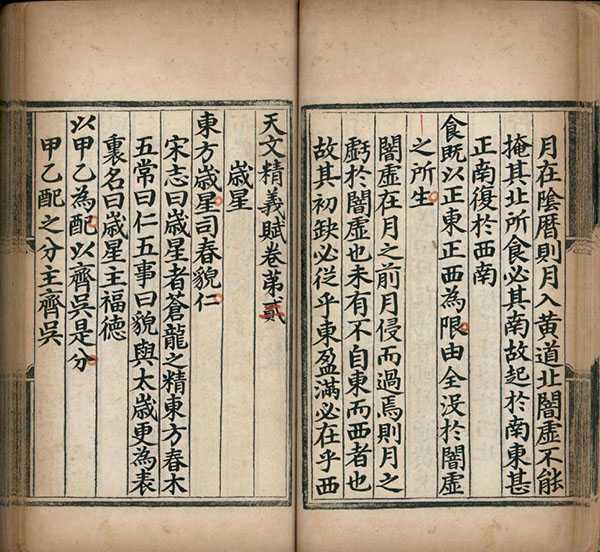 月在陰暦則月入黄道北闇虚不能
掩其北所食必其南故起於南東甚
正南復於西南
食既以正東正西為限由全没於闇虚
之所生
闇虚在月之前月侵而過焉則月之
虧於闇虚也未有不自東而西者也
故其初缺必從乎東盈滿必在乎西
天文精義賦卷第貳
歲星
東方歲星司春貌仁
宋志曰歲星者蒼龍之精東方春木
五常曰仁五事曰貌與太歲更為表
裏名曰歲星主福德
以甲乙為配以齊吳是分
甲乙配之分主齊吳